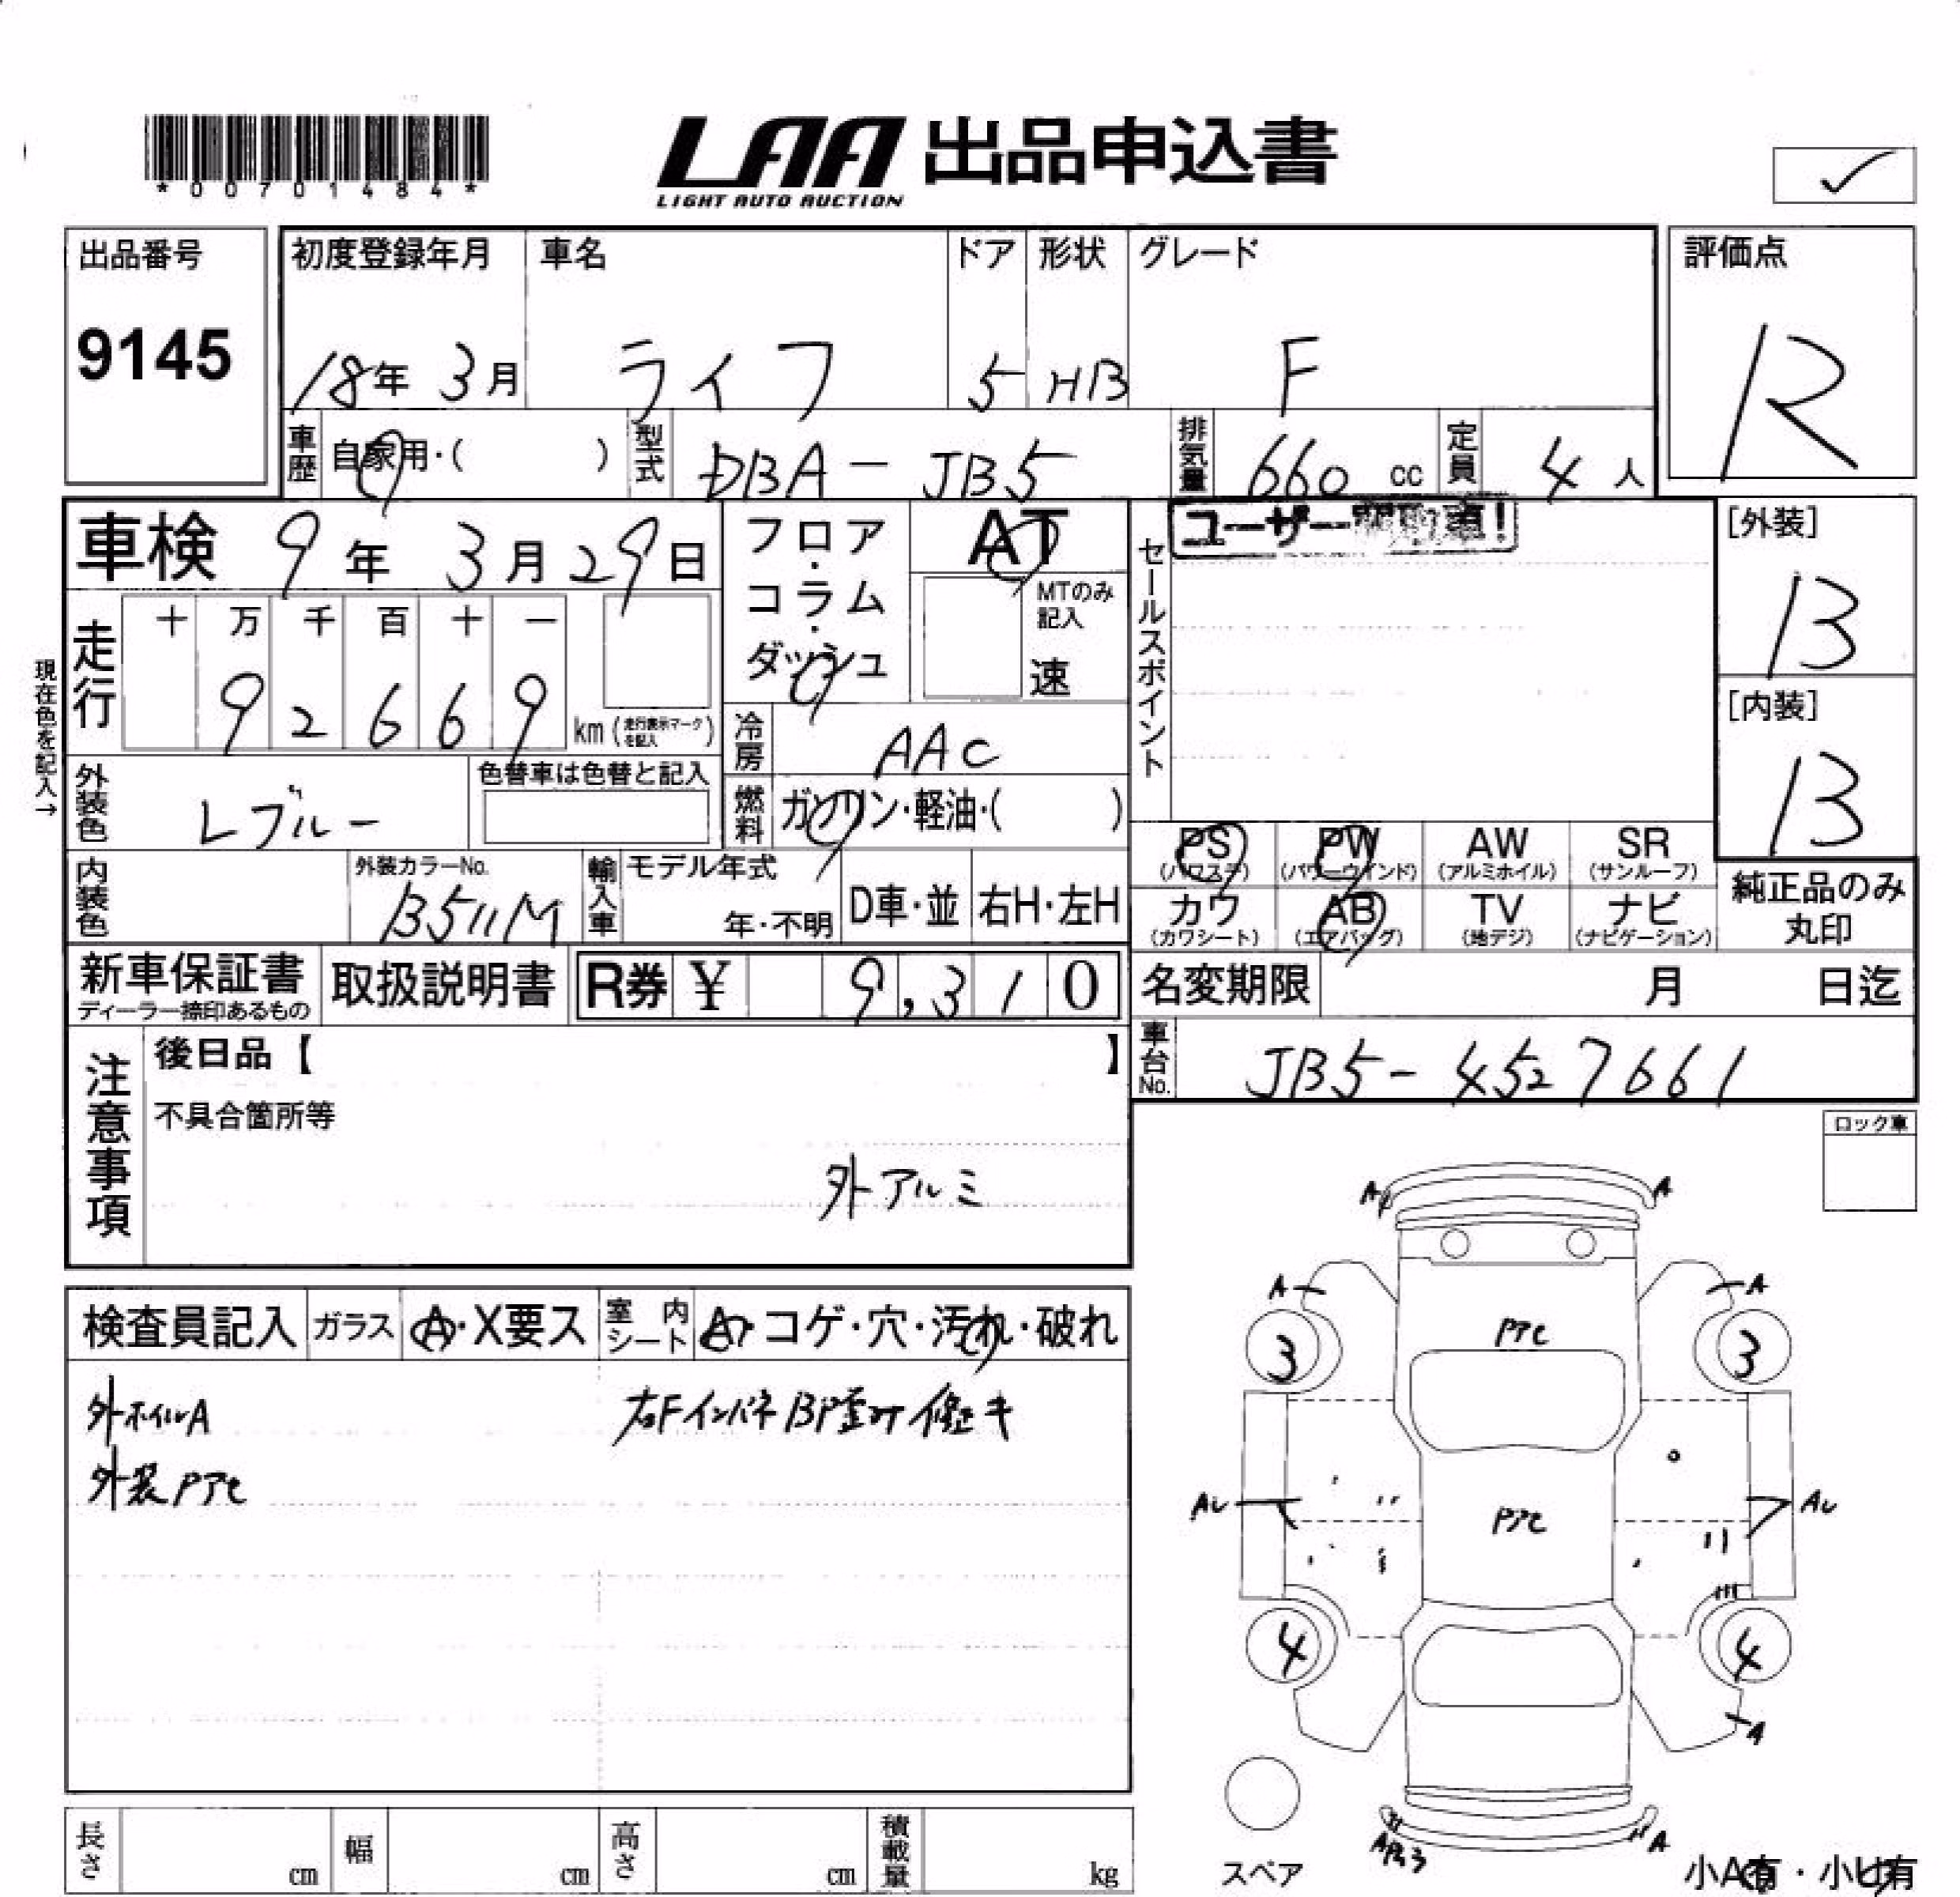 *00701484*
LAA 出品申込書
LIGHT AUTO AUCTION
✓
出品番号
9145
初度登録年月
18年 3月
車名
ライフ
ドア
5
形状
HB
グレード
F
評価点
R
車歴 自家用・( )
型式 DBA-JB5
排気量 660 cc
定員 4 人
車検 9年 3月 29日
フロア・コラム・ダッシュ
AT
MTのみ記入
速
セールスポイント
ユーザー
[外装]
B
[内装]
B
現在色を記入→
走行
十 万 千 百 十 一
9 2 6 6 9
km (走行表示マークを記入)
冷房 AAC
外装色 Lブルー
色替車は色替と記入
燃料 ガソリン・軽油・( )
PS (パワステ)
PW (パワーウインド)
AW (アルミホイル)
SR (サンルーフ)
カワ (カワシート)
AB (エアバッグ)
TV (地デジ)
ナビ (ナビゲーション)
純正品のみ
丸印
内装色
外装カラーNo.
B511M
輸入車
モデル年式
年・不明
D車・並
右H・左H
新車保証書
ディーラー捺印あるもの
取扱説明書
R券 ¥ 9,310
名変期限 月 日迄
車台No. JB5-4527661
注意事項
後日品【 】
不具合箇所等
外アルミ
ロック車
検査員記入
ガラス
A・X要ス
室内シート
A・コゲ・穴・汚れ・破れ
外ホイルA
右FインパネBP歪み修正キ
外装Pアセ
A A
A A
Pアセ
3 3
AU AU
Pアセ
4 4
A
A
スペア
小A有・小U有
長さ cm
幅 cm
高さ cm
積載量 kg